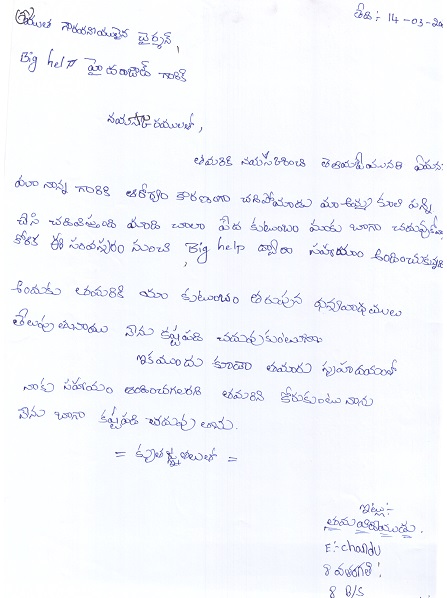 గౌరవనీయులైన చైర్మన్,
తేది:- 14-03-20
Big help హైదరాబాద్ గారికి
నమస్కారములతో,
తమరికి నమస్కరించి తెలియజేయునది ఏమన
మా నాన్న గారికి ఆరోగ్యం కారణంగా చనిపోయాడు మా అమ్మ కూలి పన్ని
చేసి చదివిస్తుంది మాది చాలా పేద కుటుంబం మాకు బాగా చదువుకో
కోరిక ఈ సంవత్సరం నుంచి Big help ద్వారా సహాయం అందించుకున్న
అందుకు తమరికి మా కుటుంబం తరుపున ధన్యవాదములు
తెలుపుతున్నాము నేను కష్టపడి చదువుకుంటున్నాను
ఇకముందు కూడా తమరు సహృదయంతో
నాకు సహాయం అందించగలరని తమరిని కోరుకుంటున్నాను
నేను బాగా కష్టపడి చదువుతాను.
= కృతజ్ఞతలతో =
ఇట్లు:-
తమ విధేయుడు.
E:- chandu
8 వతరగతి
8 B/S